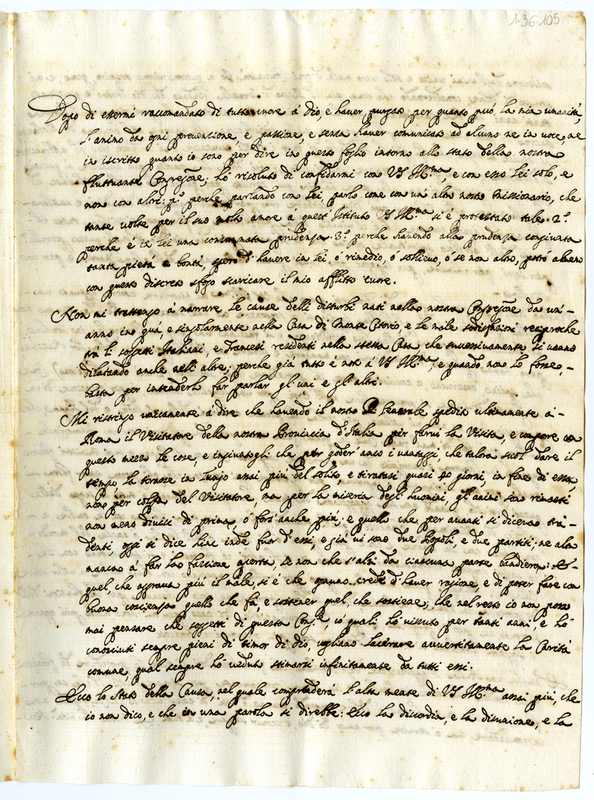 1-36-105
Dopo di essermi raccomandato di tutto cuore à dio, e haver purgato per quanto può la mia umanità,
l'animo da ogni prevenzione, e passione, e senza haver comunicato ad alcuno ne in voce, ne
in iscritto quanto io sono per dire in questo foglio intorno allo stato della nostra
fluttuante Congreg.ne; hò risoluto di confidarmi con VS Ill.ma, e con esso Lei solo, e
non con altri: p.° perche parlando con Lei, parlo come con un' altro nostro Missionario, che
tante volte per il suo molto amore a quest' Istituto VS Ill.ma si è protestato tale. 2.°
perche è in Lei una consumata prudenza. 3.° perche stando alla prudenza congiunta
tanta pietà e bontà, spero d' havere in lei, ò rimedio, ò sollievo, ò se non altro, potrò almeno
con questo discreto sfogo scaricare il mio afflitto cuore.
Non mi trattengo à narrare le cause delli disturbi nati nella nostra Congreg.ne da un'
anno in quà, e singolarmente nella Casa di Monte Citorio, e le male sodisfazioni reciproche
trà li soggetti Italiani, e Francesi residenti nella stessa Casa che successivamente si vanno
dilatando anche nell' altre; perche già tutto è noto à VS Ill.ma, e quando non lo fosse,
basta per intenderlo far parlar gli uni e gli altri.
Mi ristringo unicamente à dire che havendo il nostro Generale spedito ultimamente à
Roma il Visitatore della nostra Provincia d'Italia per farvi la Visita, e comporre con
questo mezzo le cose, e ingiuntogli che per goder anco i vantaggi che talora suol dare il
tempo la tenesse in lungo assai più del solito, e tiratasi quasi 40 giorni, in fine di essa
non per colpa del Visitatore, ma per la miseria degli huomini, gli animi son rimasti
non meno divisi di prima, ò fors' anche più; e quello che per avanti si diceva
oggi si dice hinc inde fuor d' essi, e già vi sono due popoli, e due partiti: ne altro
manca à far la fazione aperta, se non che s'alzi da ciascuna parte bandiera:
quel, che aggrava più il male, si è che ognuno crede d' haver ragione, e di poter fare con
buona coscienza quello che fà, e sostener quel, che sostiene; che nel resto io non posso
mai pensare che soggetti di questa Cong.ne co' quali hò vissuto per tanti anni e hò
conosciuti sempre pieni di timor di dio, vogliano lacerare avvertitamente la Carità
comune, qual sempre hò veduto stimarsi infinitamente da tutti essi.
Ecco lo Stato della Causa, nel quale comprenderà l'alta mente di VS Ill.ma assai più, che
io non dico, e che in una parola si direbbe: Ecco la discordia, e la disunione, e la